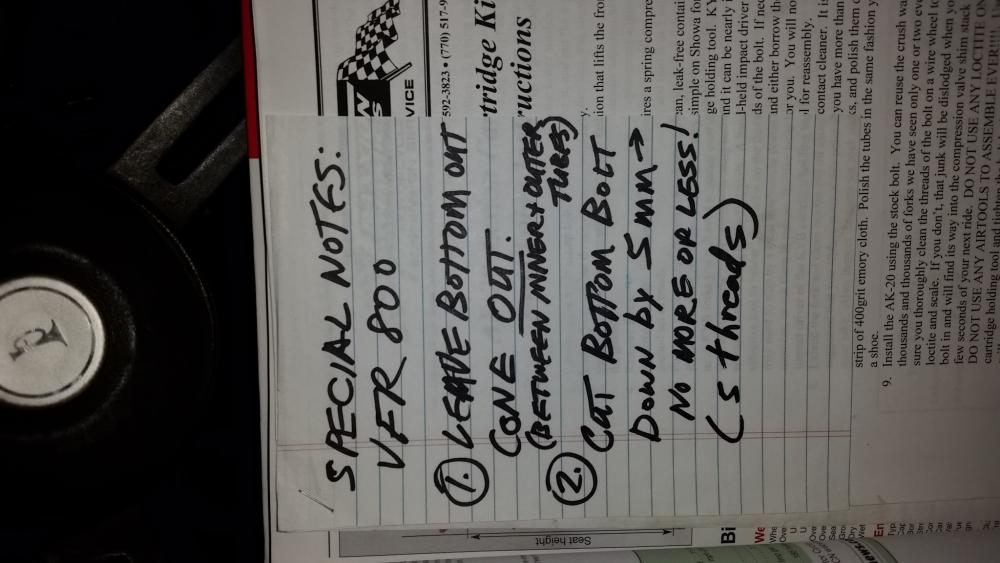 VICE
592-3823 • (770) 517-9
tridge Ki
ructions
y.
ion that lifts the fro
ires a spring compre
an, leak-free contai
simple on Showa for
ge holding tool. KY
nd it can be nearly i
l-held impact driver
ds of the bolt. If nec
and either borrow th
or you. You will no
l for reassembly.
contact cleaner. It is
you have more than
s, and polish them
SPECIAL NOTES:
VFR 800
1. LEAVE BOTTOM OUT
CONE OUT.
(BETWEEN INNER + OUTER
TUBES)
2. CUT BOTTOM BOLT
DOWN by 5 MM →
NO MORE OR LESS!
(5 threads)
strip of 400grit emory cloth. Polish the tubes in the same fashion y
a shoe.
9. Install the AK-20 using the stock bolt. You can reuse the crush wa
thousands and thousands of forks we have seen only one or two eve
sure you thoroughly clean the threads of the bolt on a wire wheel to
loctite and scale. If you don't, that junk will be dislodged when yo
bolt in and will find its way into the compression valve shim stack
few seconds of your next ride. DO NOT USE ANY LOCTITE ON
DO NOT USE ANY AIRTOOLS TO ASSEMBLE EVER!!!!
cartridge holding tool and
Seat height
Bi
We
Whe
Ove
U
U
Ove
Sea
Gro
Dry
Wet
En
Typ